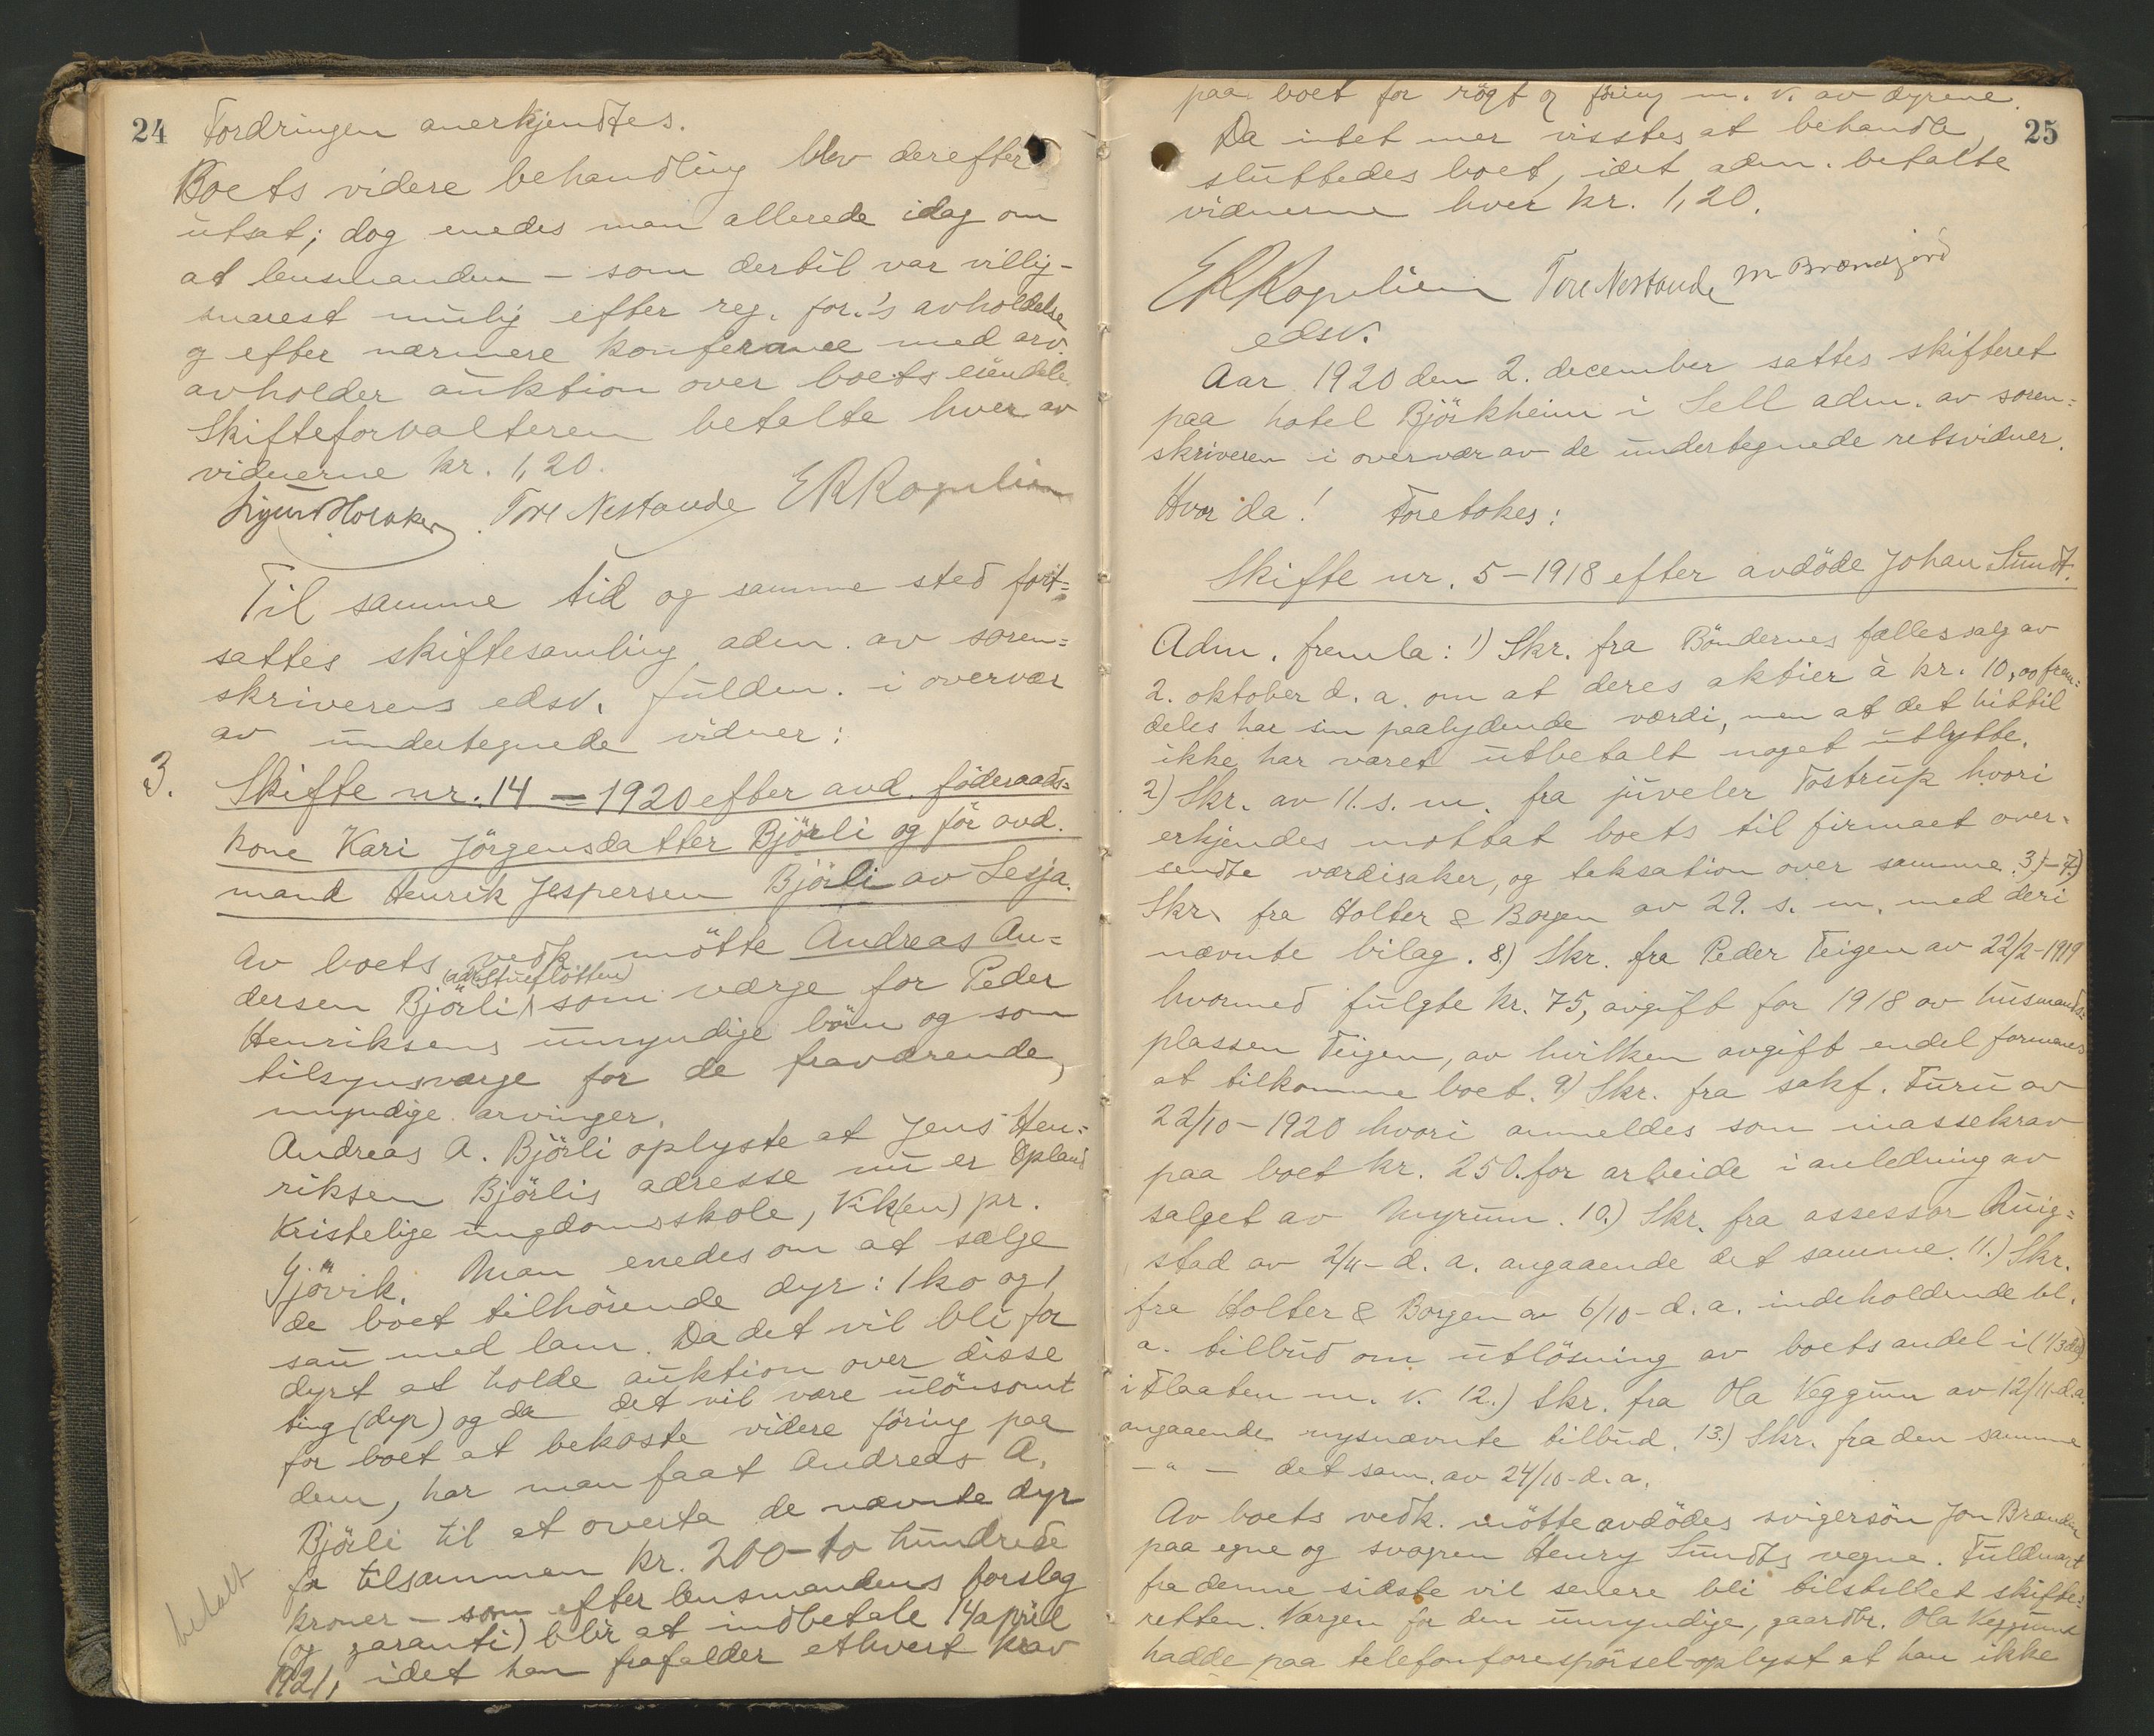 24
Fordringen anerkjendtes.
Boets videre behandling blev derefter
utsat; dog enedes man allerede idag om
at lensmanden – som dertil var villig –
snarest mulig efter reg. for.'s avholdelse
og efter nærmere konferance med arv.
avholder auktion over boets eiendele.
Skifteforvalteren betalte hver av
vidnerne kr. 1,20.
Tore Nestande
Til samme tid og samme sted fort=
sattes skiftesamling adm. av soren=
skriverens edsv. fuldm. i overvær
av undertegnede vidner:
3.
Skifte nr. 14 – 1920 efter avd. föderaads=
kone Kari Jörgensdatter Björli og för avd.
mand Henrik Jespersen Björli av Lesja.
Av boets vedk. mötte Andreas An=
(adr. Stueflotten)
dersen Björli som værge for Peder
Henriksens umyndige börn og som
tilsynsværge for de fraværende,
umyndige arvinger.
Andreas A. Björli oplyste at Jens Hen=
riksen Björlis adresse nu er Opland
Kristelige ungdomsskole, Vik(en) pr.
Gjövik. Man enedes om at sælge
de boet tilhörende dyr: 1 ko og 1
sau med lam. Da det vil bli for
dyrt at holde auktion over disse
ting (dyr) og da det vil være ulönsomt
for boet at bekoste videre föring paa
dem, har man faat Andreas A.
Björli til at overta de nævnte dyr
for tilsammen kr. 200 – to hundrede
kroner – som efter lensmandens forslag
(og garanti) blir at indbetale 14 april
1921, idet han frafalder ethvert krav
betalt
25
paa boet for rögt og föring m. v. av dyrene.
Da intet mer visstes at behandle,
sluttedes boet, idet adm. betalte
vidnerne hver kr. 1,20.
Tore Nestande
edsv.
Aar 1920 den 2. december sattes skifteret
paa hotel Björkheim i Sell adm. av soren=
skriveren i overvær av de undertegnede retsvidner.
Hvor da! Foretokes:
Skifte nr. 5 – 1918 efter avdöde Johan Sundt.
Adm. fremla: 1) Skr. fra Böndernes fællessalg av
2. oktober d. a. om at deres aktier à kr. 10,00 frem=
deles har sin paalydende værdi, men at det hittil
ikke har været utbetalt noget utbytte.
2) Skr. av 11. s. m. fra juveler Tostrup hvori
erkjendes mottat boets til firmaet over=
sendte værdisaker, og taksation over samme. 3)–7.)
Skr. fra Holter & Borgen av 29. s. m. med deri
nævnte bilag. 8.) Skr. fra Peder Teigen av 22/2-1919
hvormed fulgte kr. 75, avgift for 1918 av husmands=
plassen Teigen, av hvilken avgift endel formenes
at tilkomme boet. 9.) Skr. fra sakf. Furu av
22/10-1920 hvori anmeldes som massekrav
paa boet kr. 250. for arbeide i anledning av
salget av Myrum. 10.) Skr. fra assessor Ruig=
stad av 2/11- d. a. angaaende det samme. 11.) Skr.
fra Holter & Borgen av 6/10- d. a. indeholdende bl.
a. tilbud om utlösning av boets andel i (1/3 del)
i Flaaten m. v. 12.) Skr. fra Ola Veggum av 12/11-d.a.
angaaende nysnævnte tilbud. 13.) Skr. fra den samme
– " – det sam. av 24/10-d. a.
Av boets vedk. mötte avdödes svigersön Jon Brænden
paa egne og svogren Henry Sundts vegne. Fuldmakt
fra denne sidste vil senere bli tilstillet skifte=
retten. Værgen for den umyndige, gaardbr. Ola Veggum
hadde paa telefonforespörsel oplyst at han ikke